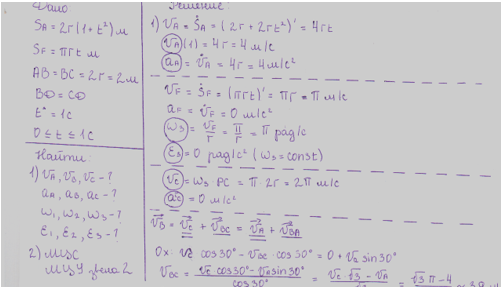 Дано
S_A = 2r(1+t²) м
S_F = πrt м
AB = BC = 2r = 2м
BD = CD
t* = 1c
0 ≤ t ≤ 1c
Найти:
1) v_A, v_B, v_C - ?
a_A, a_B, a_C - ?
ω_1, ω_2, ω_3 - ?
ε_1, ε_2, ε_3 - ?
2) МЦС
МЦУ звена 2
Решение:
1) v_A = Ṡ_A = (2r + 2rt²)' = 4rt
v_A(1) = 4r = 4 м/c
a_A = v̇_A = 4r = 4 м/c²
v_F = Ṡ_F = (πrt)' = πr = π м/c
a_F = v̇_F = 0 м/c²
ω_3 = v_F/r = π/r = π рад/c
ε_3 = 0 рад/c² (ω_3 = const)
v_C = ω_3 · PC = π · 2r = 2π м/c
a_C = 0 м/c²
v_B = v_C + v_BC = v_A + v_BA
Ox: v_C cos30° - v_BC · cos30° = 0 + v_A sin30°
v_BC = (v_C cos30° - v_A sin30°)/cos30° = (v_C · √3 - v_A)/√3 = (√3 π - 4)